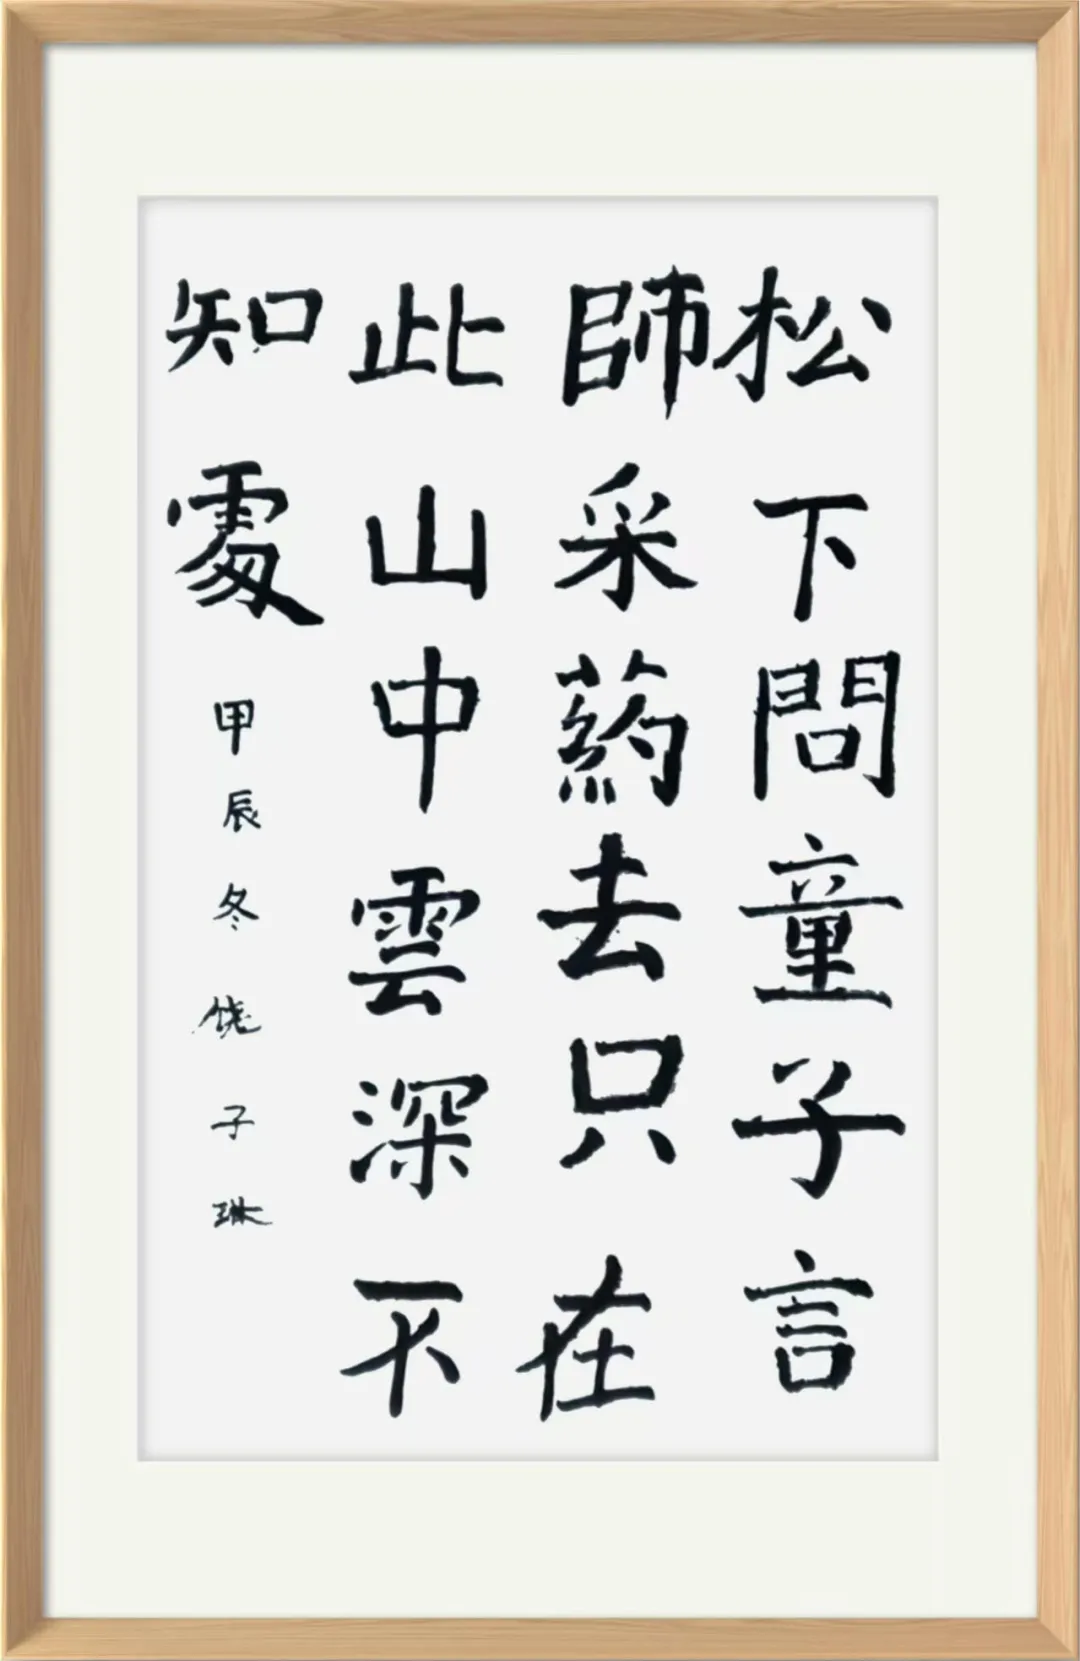 松下問童子言
師采葯去只在
此山中雲深不
知處甲辰冬饶子琳